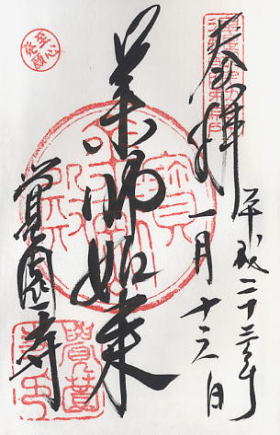 奉拝
平成二十三年
一月十六日
薬師如来
覚園寺
至心
発願